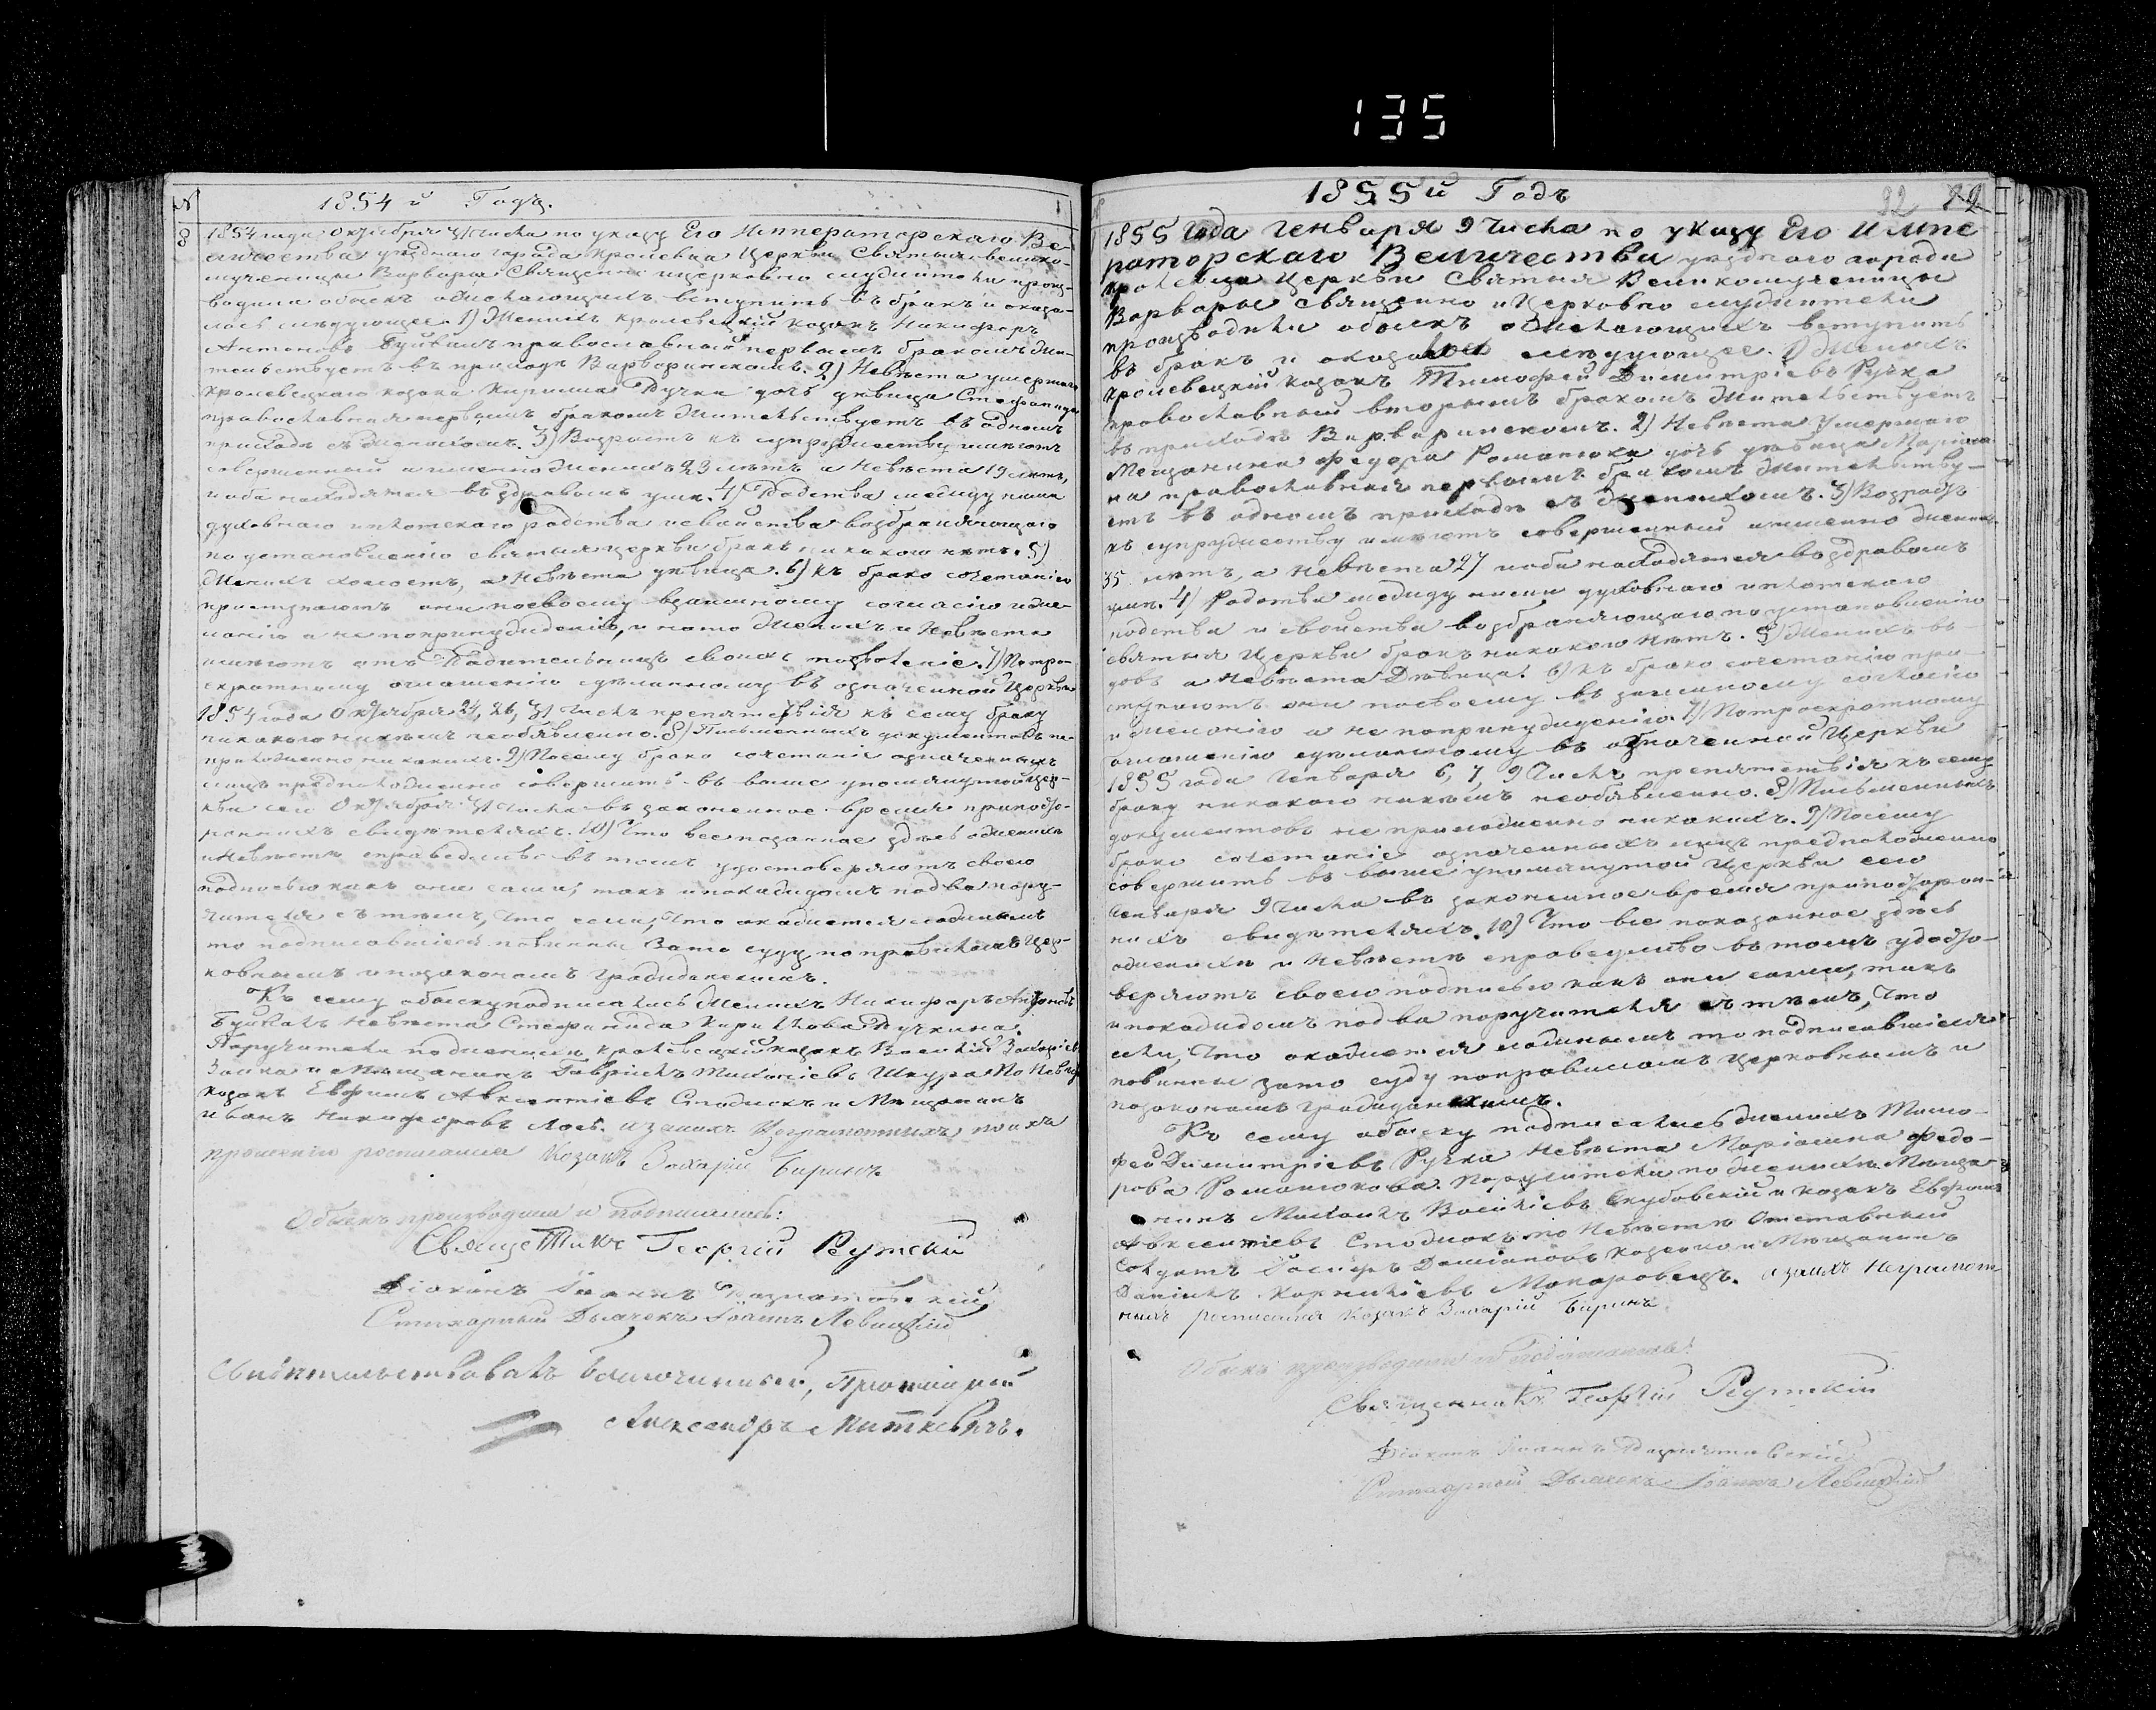 135
№ 1854 й Годъ.
8
1854 года Октября 31 числа по указу Его Императорскаго Ве-
личества уѣзднаго города Кролевца Церкви Святыя велико-
мученицы Варвары Священно и церковно служители произ-
водили обыскъ о желающихъ вступить въ бракъ и оказа-
лось слѣдующее. 1) Женихъ кролевецкій козакъ Никифоръ
Антоновъ православный первымъ бракомъ жи-
тельствуетъ въ приходѣ Варваринскомъ. 2) Невѣста умершаго
кролевецкаго козака Кирилла Ручки дочь дѣвица Стефанида
православная первымъ бракомъ жительствуетъ въ одномъ
приходѣ съ женихомъ. 3) Возрастъ къ супружеству имѣютъ
совершенный а именно женихъ 23 лѣтъ а Невѣста 19 лѣтъ,
и оба находятся въ здравомъ умѣ. 4) Родства между ними
духовнаго и плотскаго родства и свойства возбраняющаго
по установленію святыя церкви бракъ никакого нѣтъ. 5)
Женихъ холостъ, а Невѣста дѣвица. 6) Къ брако сочетанію
приступаютъ они по своему взаимному согласію и же-
ланію а не по принужденію, и на то Женихъ и Невѣста
имѣютъ отъ Родительницъ своихъ позволеніе. 7) По тро-
екратному оглашенію сдѣланному въ означенной Церкви
1854 года Октября 24, 26, 31 числъ препятствія къ сему браку
никакого никѣмъ необъявлено. 8) Письменныхъ документовъ не
приложенно никакихъ. 9) Посему брако сочетаніе означенныхъ
лицъ предположенно совершить въ выше упомянутой Цер-
кви сего Октября 31 числа въ законенное время при посто-
роннихъ свидѣтеляхъ. 10) Что все показанное здѣсь о женихѣ
и Невѣстѣ справедливо въ томъ удостовѣряютъ своею
подписью какъ они сами, такъ и по каждомъ по два пору-
чителя съ тѣмъ, что если, что окажется ложнымъ
то подписавшіеся повинны за то суду по правиламъ Цер-
ковнымъ и по законамъ гражданскимъ.
Къ сему обыску подписались Женихъ Никифоръ Антоновъ
Невѣста Стефанида Кирилова Ручкина.
Поручители по женихѣ кролевецкій козакъ Василій
Заика и Мѣщанинъ Гавріилъ Шкура По Невѣстѣ
козакъ Евфимъ Авксентіевъ Стодюкъ и Мѣщанинъ
Иванъ Никифоровъ Лось. а за нихъ неграмотныхъ по ихъ
прошенію росписался Козакъ Захарій Биринъ
Обыскъ производили и подписались:
Священникъ Георгій Рутскій
Діаконъ Іоаннъ
Стихарный Дьячекъ Іоаннъ Левицкій
Свидѣтельствовалъ благочинный, Протоіерей
Александръ Миткевичъ.
1855 й Годъ
92
1855 Года Генваря 9 числа по указу Его Импе
раторскаго Величества уѣзднаго города
кролевца Церкви Святыя Великомученицы
Варвары священно и Церковно служители
производили обыскъ о желающихъ вступить
въ бракъ и оказалось слѣдующее. 1) Женихъ
кролевецкій козакъ Тимофей Димитріевъ Ручка
православный вторымъ бракомъ жительствуетъ
въ приходѣ Варваринскомъ. 2) Невѣста умершаго
Мещанина Федора Романюка дочь дѣвица Маріам-
на православная первымъ бракомъ жительству-
етъ въ одномъ приходѣ съ женихомъ. 3) Возрастъ
къ супружеству имѣютъ совершенный а именно женихъ
35 лѣтъ, а Невѣста 27 и оба находятся въ здравомъ
умѣ. 4) Родства между ними духовнаго и плотскаго
родства и свойства возбраняющаго по установленію
святыя Церкви бракъ никакого нѣтъ. 5) Женихъ в-
довъ а Невѣста Дѣвица. 6) Къ брако сочетанію при-
ступаютъ они по своему взаимному согласію
и желанію а не по принужденію. 7) По троекратному
оглашенію сдѣланному въ означенной Церкви
1855 года Генваря 6, 7, 9 числъ препятствія къ сему
браку никакого никѣмъ необъявленно. 8) Письменныхъ
документовъ не приложенно никакихъ. 9) Посему
брако сочетаніе означенныхъ лицъ предположенно
совершить въ выше упомянутой Церкви сего
Генваря 9 числа въ законенное время при посторон-
нихъ свидѣтеляхъ. 10) Что все показанное здѣсь
о женихѣ и Невѣстѣ справедливо въ томъ удосто-
веряютъ своею подписью какъ они сами, такъ
и по каждомъ по два поручителя съ тѣмъ, что
если, что окажется ложнымъ то подписавшіеся
повинны за то суду по правиламъ церковнымъ и
по законамъ гражданскимъ.
Къ сему обыску подписались женихъ Тимо-
фей Димитріевъ Ручка Невѣста Маріамна Федо-
рова Романюкова. Поручители по женихѣ Мѣща-
нинъ Михаилъ Василіевъ Якубовскій и козакъ Евфимъ
Авксентіевъ Стодюкъ по Невѣстѣ Отставный
Солдатъ Даміановъ и Мѣщанинъ
Даніилъ Корниліевъ Макаровецъ. а за нихъ неграмот-
ныхъ росписался Козакъ Захарій Биринъ
Обыскъ производили и подписались:
Священникъ Георгій Рутскій
Діаконъ Іоаннъ
Стихарный Дьячекъ Іоаннъ Левицкій